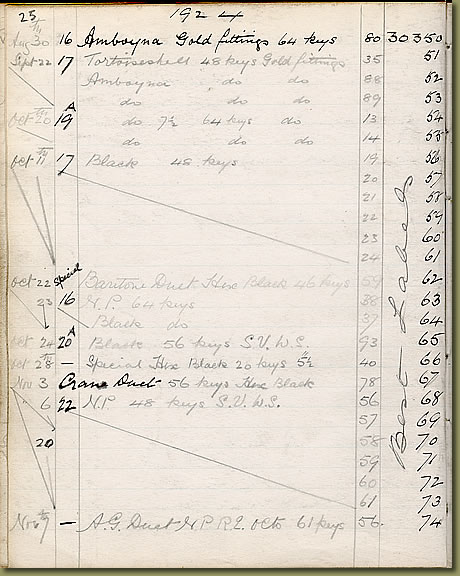 25 1924
Aug 30 16 Amboyna Gold fittings 64 keys 80 30350
Sept 22 17 Tortoiseshell 48 keys Gold fittings 35 51
Amboyna do do 88 52
do do do 89 53
Oct 20 19A do 7½ 64 keys do 13 54
do do do 14 55
Oct 11 17 Black 48 keys 19 56
20 57
21 58
22 59
23 60
24 61
Oct 22 Special Baritone Duet Hex Black 46 keys 59 62
23 16 N.P. 64 keys 38 63
Black do 37 64
Oct 24 20A Black 56 keys S.V.W.S. 93 65
Oct 28 — Special Hex Black 20 keys 5½" 40 66
Nov 3 Crane Duet 56 keys Hex Black 78 67
6 22 N.P. 48 keys S.V.W.S. 56 68
57 69
20 58 70
59 71
60 72
61 73
Nov 7 — A.G. Duet N.P.R.E. Octo 61 keys 56 74
Best Labels